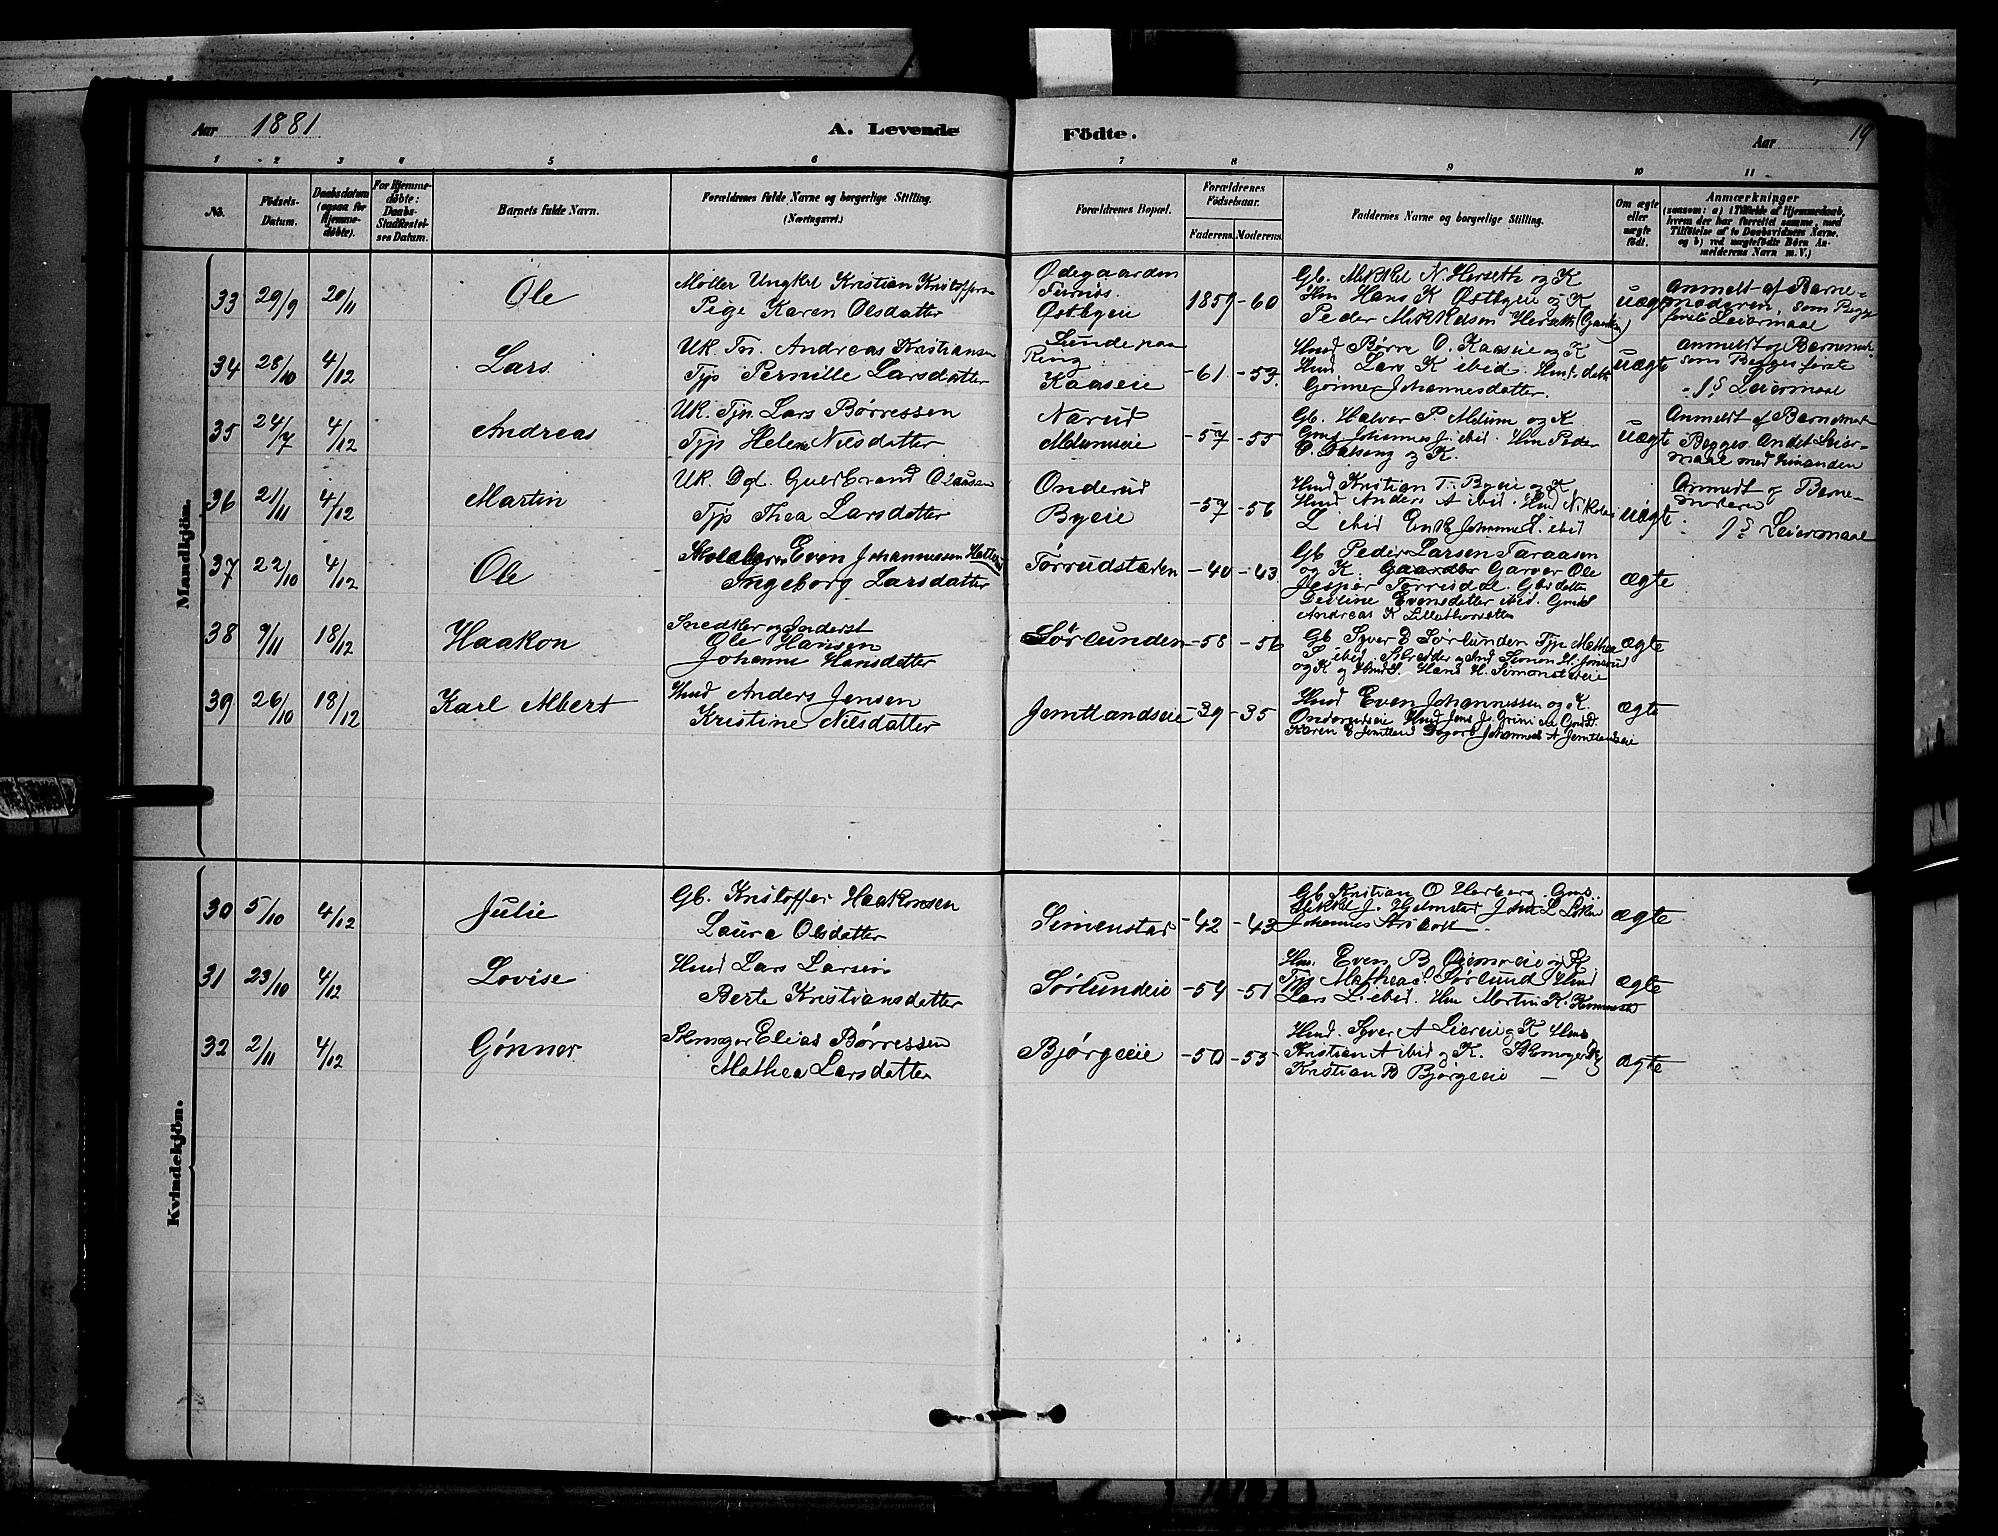 Aar 1881
A. Levende
Födte.
Aar
19
1 2 3 4 5 6 7 8 9 10 11
No.
Födsels-
Datum.
Daabsdatum
(ogsaa for
Hjemme-
döbte).
For Hjemme-
döbte:
Daabs-
Stadfæstel-
ses Datum.
Barnets fulde Navn.
Forældrenes fulde Navne og borgerlige Stilling.
(Næringsvei.)
Forældrenes Bopæl.
Forældrenes
Födselsaar.
Faderens. Moderens.
Faddernes Navne og borgerlige Stilling.
Om ægte
eller
uægte
födt.
Anmærkninger
(saasom: a) i Tilfælde af Hjemmedaab,
hvem der har forrettet samme, med
Tilföielse af to Daabsvidners Navne,
og b) ved uægtefödte Börn An-
melderens Navn m. V.)
Mandkjön.
33 29/9 20/11 Ole
Møller Ungkl Kristian Kristoffersen
Pige Karen Olsdatter
Ødegaarden
Fernæs
Østbyeie
1859 -60
Gb. Mikkel N. Herseth og K
Hm Hans K Østbyeie og K
Peder Mikkelsen Herseth (Gaarden)
uægte
Anmeldt af Barne-
moderen, som Begges
første Leiermaal
34 28/10 4/12 Lars
UK. Tn. Andreas Kristiansen
Tjp Pernille Larsdatter
Lunde paa
Ring
Kaaseie
-61 -53
Hmd Børre O. Kaaseie og K
Hmd Lars K ibid. Hmds datt
Gønner Johannesdatter.
uægte
Anmeldt af Barnemod.
som Begges første
Leiermaal
35 24/7 4/12 Andreas
UK. Tjn. Lars Børressen
Tjp Helene Nilsdatter
Narud
Melumseie
-57 -55
Gb. Halvor P. Melum og K
Gmd Johannes J. ibid. Hm Peder
O. Dalseng og K.
uægte
Anmeldt af Barnemod
Begges Andet Leier-
maal med hinanden
36 21/11 4/12 Martin
UK. Dgl. Guldbrand Olaussen
Tjp Thea Larsdatter
Onderud
Byeie
-57 -56
Hmd Kristian T. Byeie og K
Hmd Anders A ibid Hmd Nikolai
L ibid Enk Johanne L. ibid
uægte
Anmeldt af Barne-
moderen
1ste Leiermaal
37 22/10 4/12 Ole
Skolelærer Even Johannessen
Ingeborg Larsdatter
Tørrudstæren
-40 -43
Gb Peder Larsen Taraasen
og K Garver Ole
Jesper Torrisdal. Gbs datter
Evensdatter ibid. Gmds
Andreas K Lillethorsætter
ægte
38 9/11 18/12 Haakon
Snedker og Inderst
Ole Hansen
Johanne Hansdatter
Sørlunden
-58 -56
Gb Syver E Sørlunden Tjp Mathea
S ibid. Skredder og Ind Simon
og K og Hmds. Hans H. Simenstadeie
ægte
39 26/10 18/12 Karl Albert
Hmd Anders Jensen
Kristine Nilsdatter
Jemtlandseie
-39 -35
Hmd Even Johannessen og K.
Onderudseie Hmd Jens Js. Grini
Karen E Jemtland Dagarb Johannes A Jemtlandseie
ægte
Kvindekjön.
30 5/10 4/12 Julie
Gb. Kristoffer Haakonsen
Laura Olsdatter
Simenstad
-42 -43
Gb Kristian O Herberg. Gmd
Mikkel J. Hjelmstad John L Løken
Johannes
ægte
31 23/10 4/12 Lovise
Hmd Lars Larsen
Berte Kristiansdatter
Sørlundeie
-54 -51
Hm. Even B. og K
Tjp Mathea Sørlund Hmd
Lars L ibid. Hm Martin K.
ægte
32 2/11 4/12 Gønner
Skomager Elias Børressen
Mathea Larsdatter
Bjørgeeie
-50 -55
Hmd. Syver A Liereie og K Hmd
Kristian A ibid og K. Skomager
Kristian B Bjørgeeie
ægte